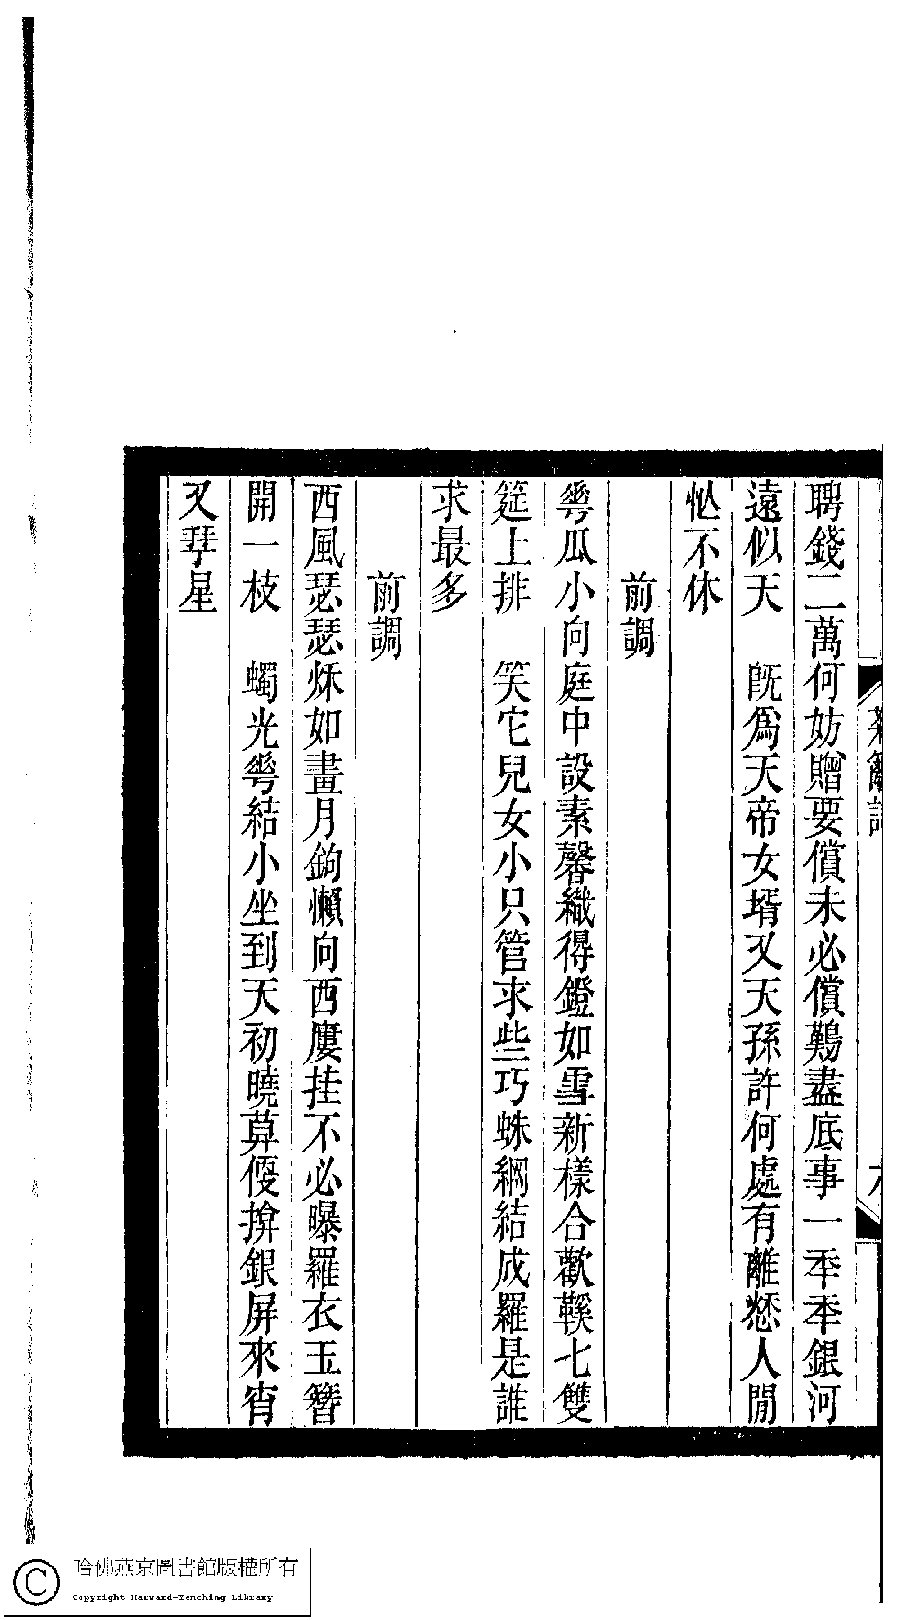 聘錢二萬何妨贈要償未必償鷄盡底事一秊秊銀河
遠似天　旣爲天帝女壻又天孫許何處有離愁人閒
怭不休
前調
雩瓜小向庭中設素馨織得鐙如雪新樣合歡鞵七雙
筵上排　笑它兒女小只管求些巧蛛網結成羅是誰
求最多
前調
西風瑟瑟秌如畫月鉤懶向西廔挂不必曝羅衣玉簪
開一枝　蠋光雩結小坐到天初曉算偄揜銀屏來宵
又琴星
六
哈佛燕京圖書館版權所有
Copyright Harvard-Yenching Library